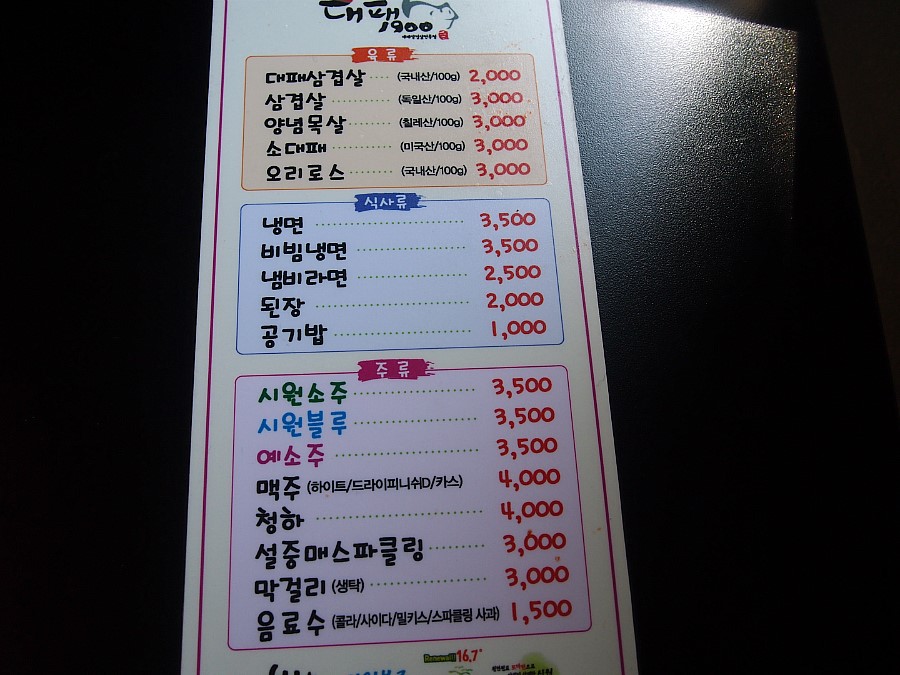 대패
1900
육류
대패삼겹살 (국내산/100g) 2,000
삼겹살 (독일산/100g) 3,000
양념목살 (칠레산/100g) 3,000
소대패 (미국산/100g) 3,000
오리로스 (국내산/100g) 3,000
식사류
냉면 3,500
비빔냉면 3,500
냄비라면 2,500
된장 2,000
공기밥 1,000
주류
시원소주 3,500
시원블루 3,500
예소주 3,500
맥주 (하이트/드라이피니쉬D/카스) 4,000
청하 4,000
설중매스파클링 3,000
막걸리 (생탁) 3,000
음료수 (콜라/사이다/밀키스/스파클링 사과) 1,500
Renewal!! 16.7°